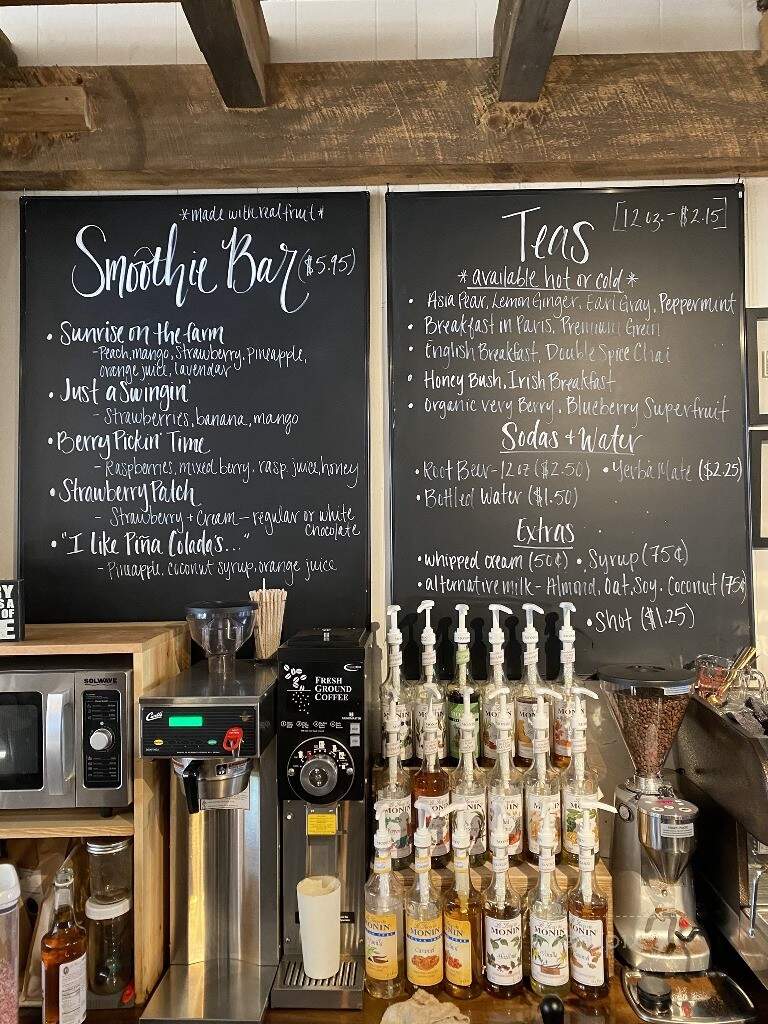 *made with real fruit*
Smoothie Bar ($5.95)
• Sunrise on the farm
- Peach, mango, Strawberry, Pineapple,
orange juice, lavendar
• Just a Swingin'
- Strawberries, banana, mango
• Berry Pickin' Time
- Raspberries, mixed berry, rasp. juice, honey
• Strawberry Patch
- Strawberry + Cream - regular or white
chocolate
• "I like Piña Colada's..."
- Pineapple, coconut syrup, orange juice
Teas [12 oz. - $2.15]
*available hot or cold*
• Asia Pear, Lemon Ginger, Earl Gray, Peppermint
• Breakfast in Paris, Premium Green
• English Breakfast, Double Spice Chai
• Honey Bush, Irish Breakfast
• Organic Very Berry, Blueberry Superfruit
Sodas + Water
• Root Beer - 12 oz ($2.50) • Yerba Mate ($2.25)
• Bottled Water ($1.50)
Extras
• whipped cream (50¢) • Syrup (75¢)
• alternative milk - Almond, Oat, Soy, Coconut (75¢)
• Shot ($1.25)
SOLWAVE
Curtis
FRESH
GROUND
COFFEE
MONIN
MONIN
MONIN
MONIN
MONIN
MONIN
MONIN
MONIN
MONIN
MONIN
MONIN
MONIN